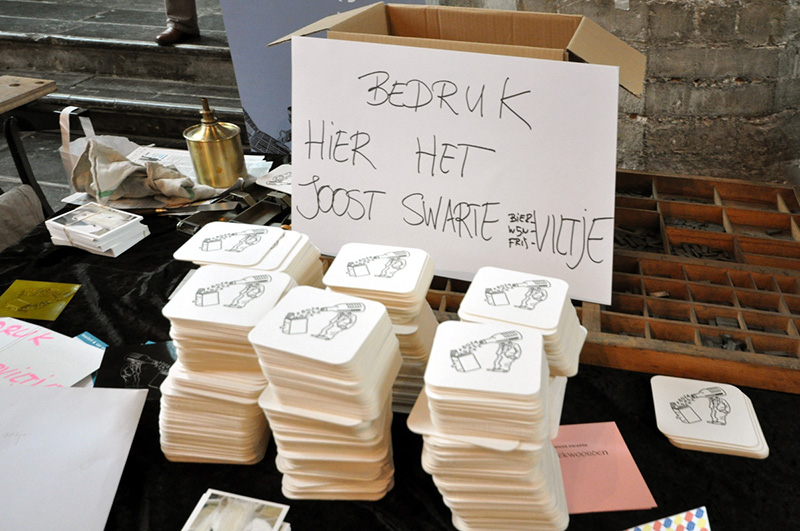 BEDRUK
HIER HET
JOOST SWARTE BIER- VILTJE
WIJN-
FRIS-
DRUK